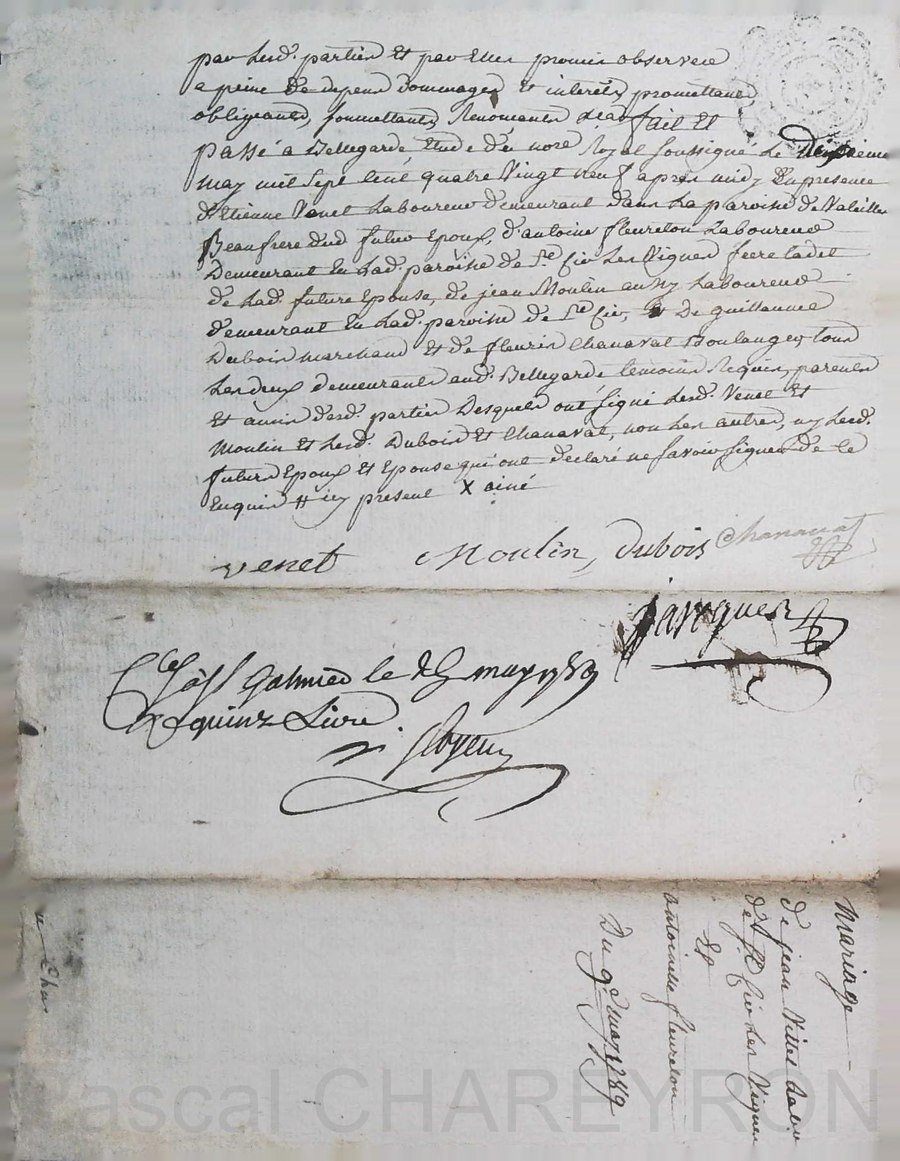 par lesd. parties Et par Elles promis observer
a peine de depens dommages Et interets, promettant,
obligeants, soumettants, Renonceants &ca fait Et
passé a Bellegarde Etude du nore Royal soussigné Le
may mil sept cent quatre Vingt neuf apres midy En presence
d'Etienne Venet Laboureur demeurant dans La paroisse de Valeilles
Beaufrere dud. futur Epoux, d'antoine fleureton Laboureur
Demeurant En lad. paroisse de St Cir Les Vignes frere
de Lad. future Epouse, de jean Moulin aussy Laboureur
demeurant En Lad. paroisse de St Cir, Et De guillaume
Dubois marchand Et de fleurie Chanavat Boulanger tous
Les deux demeurants aud. Bellegarde temoins Requis, parents
Et amis desd. parties Desquels ont signé Lesd. Venet Et
Moulin Et Lesd. Dubois Et Chanavat, non Les autres, ny Lesd.
futurs Epoux Et Epouse qui ont declaré ne savoir signer de ce
Enquis # icy present X ainé
venet Moulin, dubois Chanavat
galmier le may 1789
quinz Livre
Mariage
de jean
de St Cir Les Vignes
Et
antoinette fleureton
Du 9e may 1789
Pascal CHAREYRON